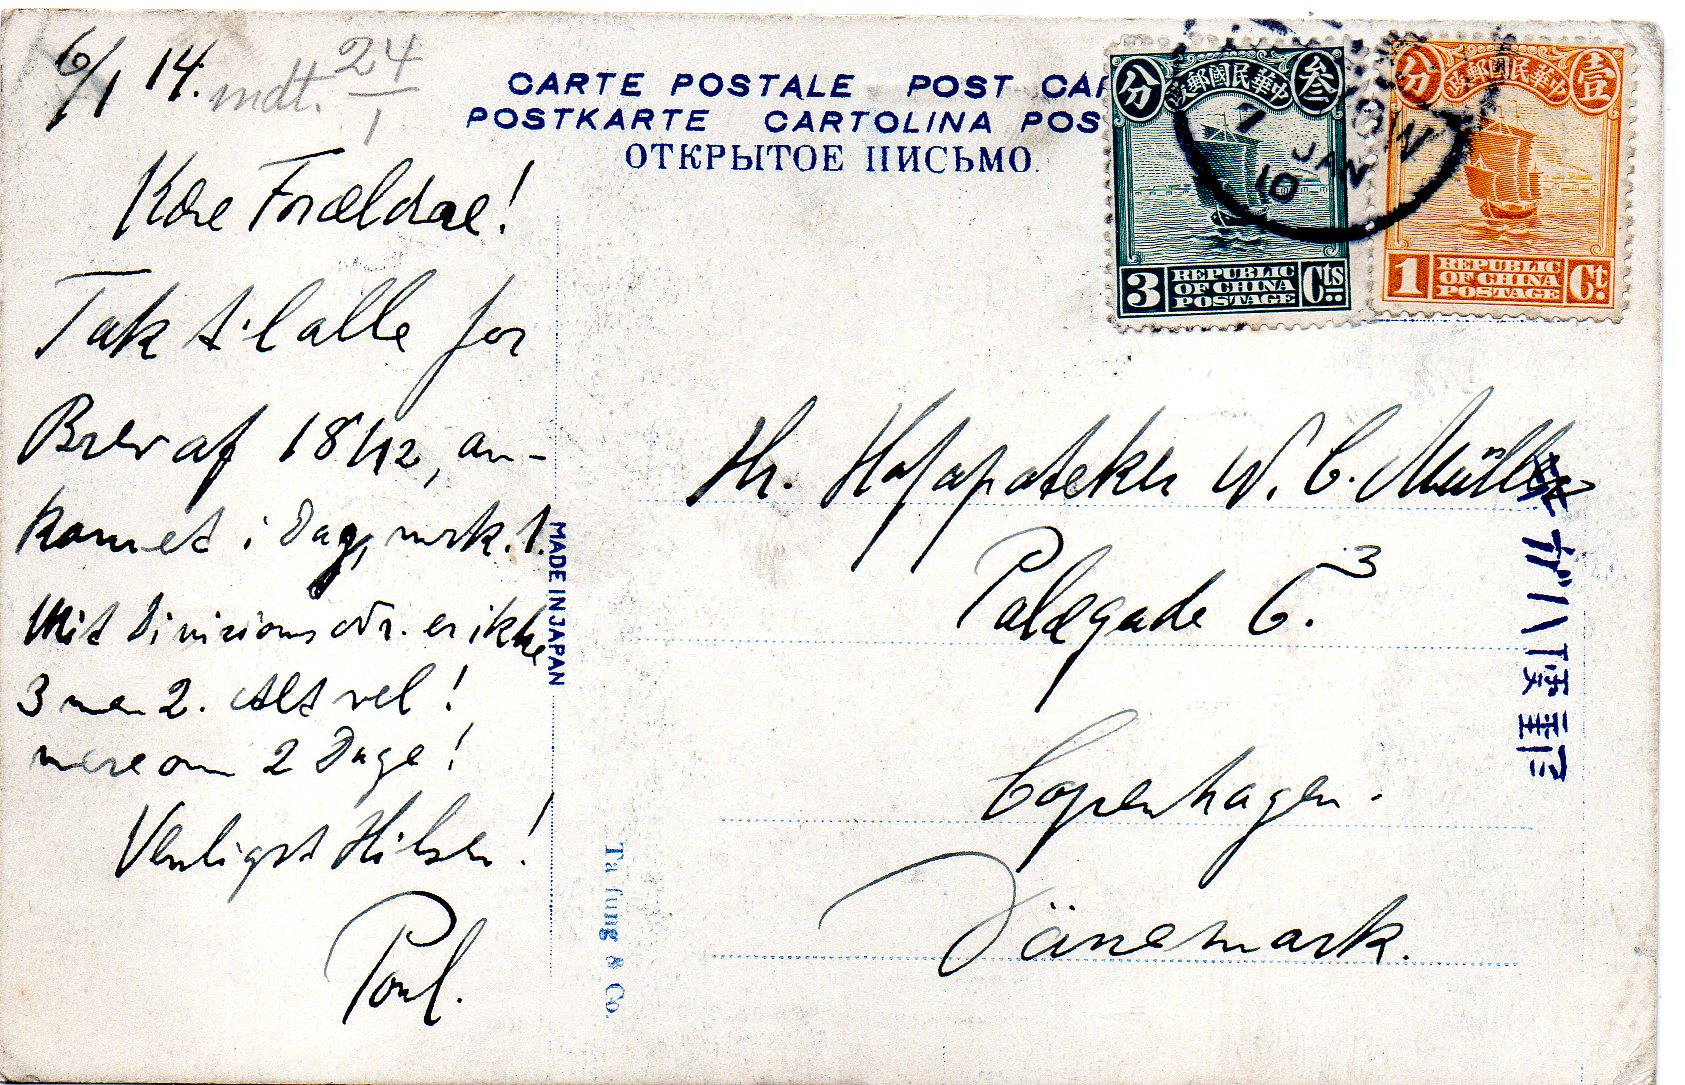 6/1 14. mdt. 24/1
CARTE POSTALE POST CAR
POSTKARTE CARTOLINA POS
ОТКРЫТОЕ ПИСЬМО.
Kære Forældre!
Tak til alle for
Brev af 18/12, an-
kommet i Dag, mrk. 1.
Mit Divisions Nr. er ikke
3 men 2. Alt vel!
mere om 2 Dage!
Venligst Hilsen!
Poul.
MADE IN JAPAN
Ta fung & Co.
中華民國郵政
叁 分
3 Cts
REPUBLIC
OF CHINA
POSTAGE
中華民國郵政
壹 分
1 Ct.
REPUBLIC
OF CHINA
POSTAGE
7
JAN
10
Hr. Hofapoteker W. C. Müller
Palægade 6.3
Copenhagen.
Dänemark.